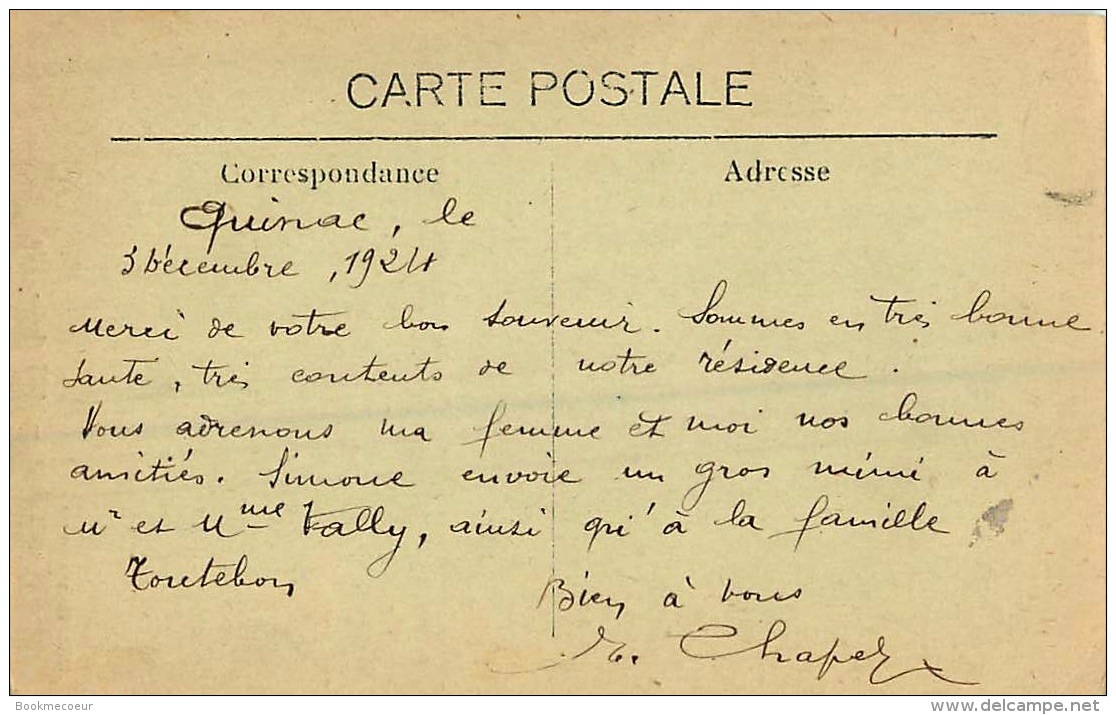 CARTE POSTALE
Correspondance
Adresse
Quinac, le
3 Décembre, 1924
Merci de votre bon souvenir. Sommes en très bonne
santé, très contents de notre résidence.
Vous adressons ma femme et moi nos bonnes
amitiés. Simone envoie un gros mimi à
Mr et Mme Fally, ainsi qu'à la famille
Toutebon
Bien à vous
Chapel
Bookmecoeur
www.delcampe.net